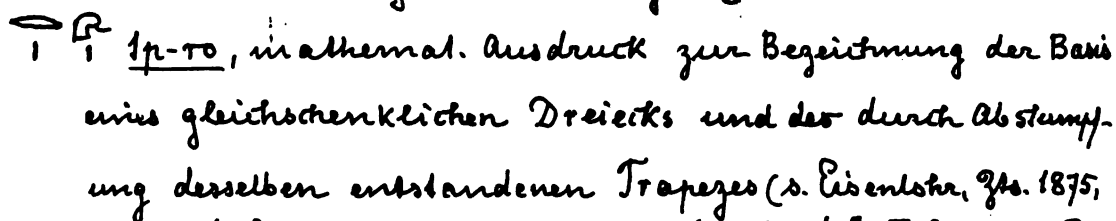 1p-ro, mathemat. Ausdruck zur Bezeichnung der Basis
eines gleichschenklichen Dreiecks und des durch Abstumpf-
ung desselben entstandenen Trapezes (s. Eisenlohr, Zts. 1875,